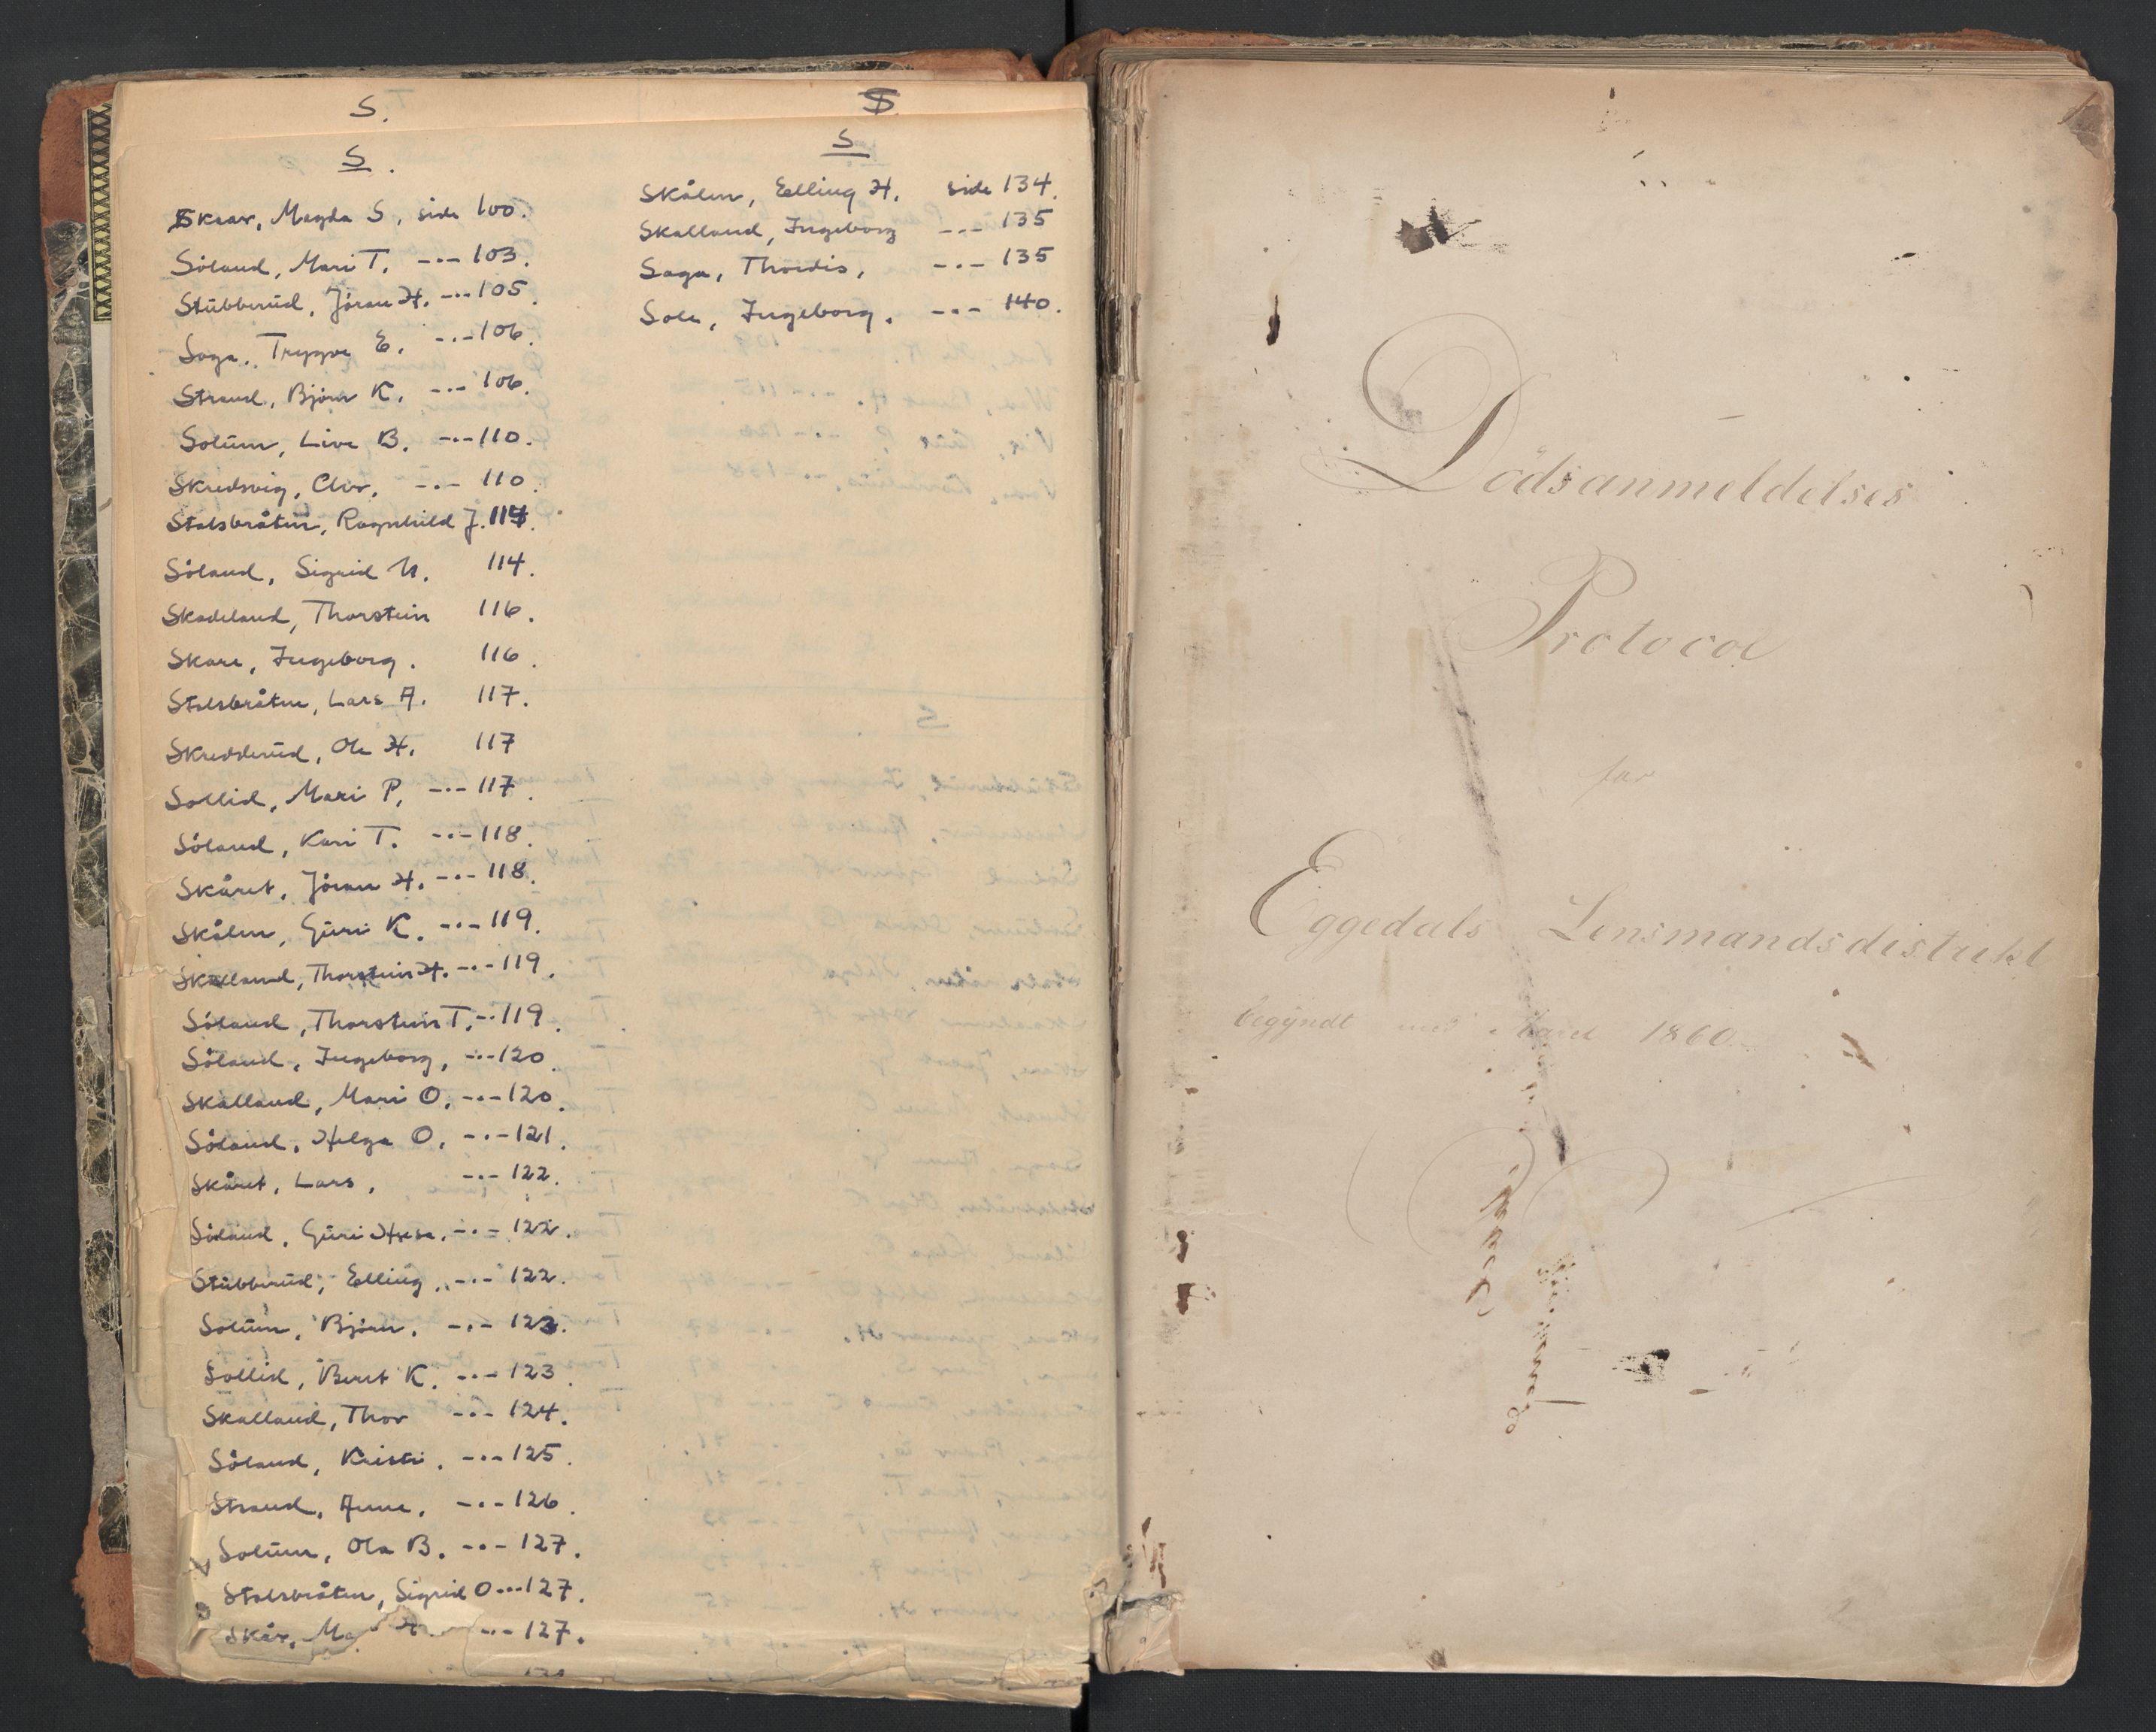 S.
S.
Skaar, Magda S, side 100.
Söland, Mari T. -·- 103.
Stubberud, Jöran H. -·- 105.
Saga, Trygve E. -·- 106.
Strand, Björn K. -·- 106.
Solum, Live B. -·- 110.
Skredsvig, Chr. -·- 110.
Stalsbråten, Ragnhild J. 114.
Söland, Sigrid N. 114.
Skadeland, Thorstein 116.
Skare, Ingeborg. 116.
Stalsbråten, Lars A. 117.
Skredderud, Ole H. 117
Sollid, Mari P. -·- 117.
Söland, Kari T. -·- 118.
Skåret, Jöran H. -·- 118.
Skålen, Guri K. -·- 119.
Skalland, Thorstein H. -·- 119.
Söland, Thorstein T. -·- 119.
Söland, Ingeborg, -·- 120.
Skalland, Mari O. -·- 120.
Söland, Helga O. -·- 121.
Skåret, Lars, -·- 122.
Söland, Guri -·- 122.
Stubberud, Elling, -·- 122.
Solum, Björn. -·- 123.
Sollid, Berit K. -·- 123.
Skalland, Thor -·- 124.
Söland, Kristi. -·- 125.
Strand, Anne. -·- 126.
Solum, Ola B. -·- 127.
Stalsbråten, Sigrid O -·- 127.
Skår, Ma H. -·- 127.
S.
S
Skålen, Elling H. side 134.
Skalland, Ingeborg -·- 135
Saga, Thordis, -·- 135
Sole, Ingeborg. -·- 140.
Dödsanmeldelses
Protocol
for
Eggedals Lensmandsdistrikt
begyndt med Aaret 1860